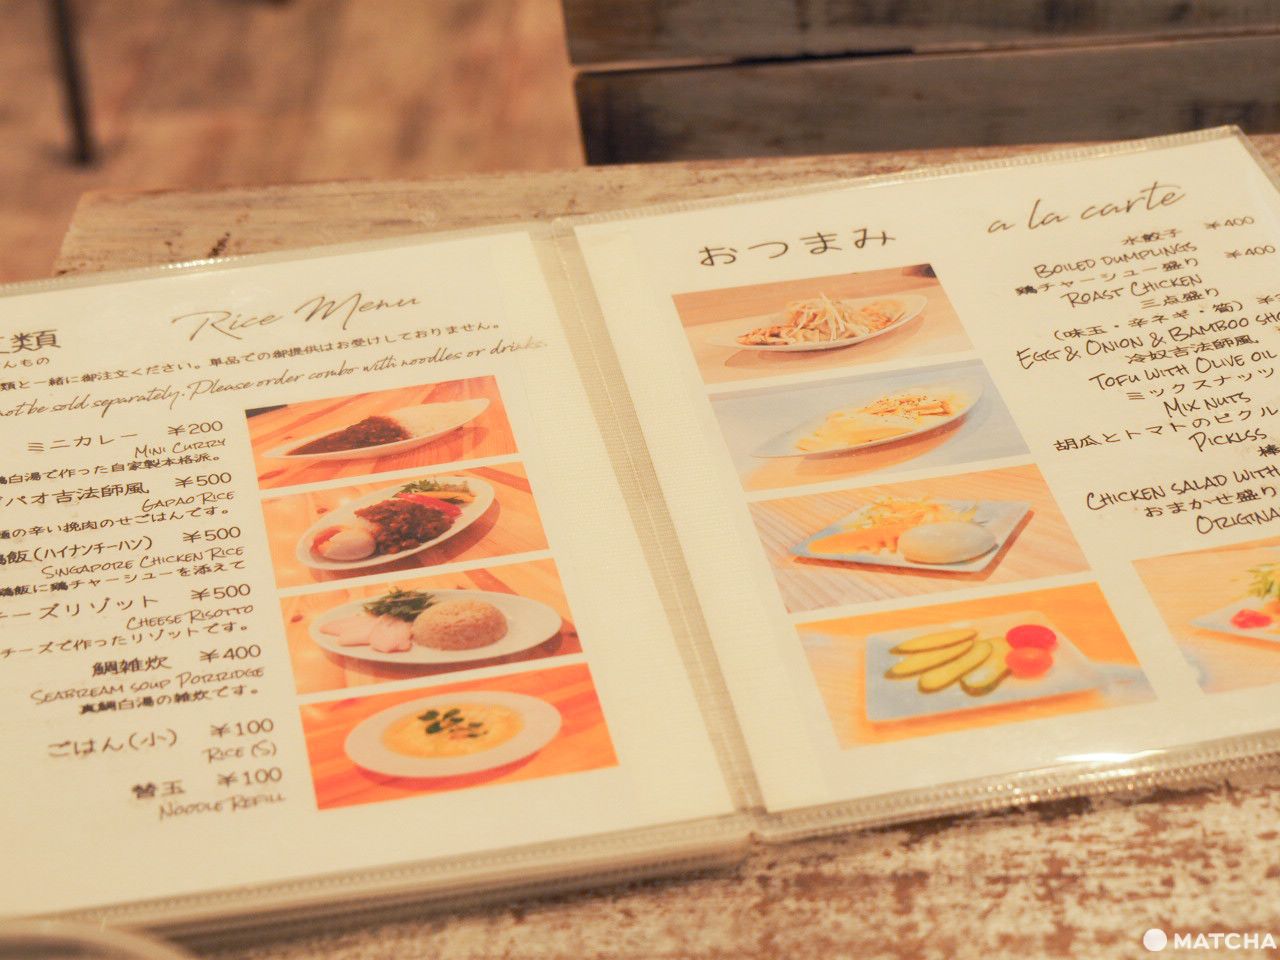 類
んもの
Rice Menu
類と一緒に御注文ください。単品での御提供はお受けしておりません。
not be sold separately. Please order combo with noodles or drinks.
ミニカレー ¥200
MINI CURRY
鶏白湯で作った自家製本格派。
パオ吉法師風 ¥500
GAPAO RICE
の辛い挽肉のせごはんです。
飯(ハイナンチーハン) ¥500
SINGAPORE CHICKEN RICE
鶏飯に鶏チャーシューを添えて
チーズリゾット ¥500
CHEESE RISOTTO
チーズで作ったリゾットです。
鯛雑炊 ¥400
SEABREAM SOUP PORRIDGE
真鯛白湯の雑炊です。
ごはん(小) ¥100
RICE (S)
替玉 ¥100
NOODLE REFILL
おつまみ
a la carte
水餃子 ¥400
BOILED DUMPLINGS
鶏チャーシュー盛り ¥400
ROAST CHICKEN
三点盛り
(味玉・辛ネギ・筍) ¥
EGG & ONION & BAMBOO SHO
冷奴吉法師風
TOFU WITH OLIVE OIL
ミックスナッツ
MIX NUTS
胡瓜とトマトのピクル
PICKLSS
棒
CHICKEN SALAD WITH
おまかせ盛り
ORIGINA
MATCHA